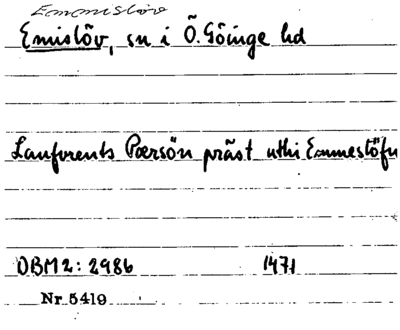 Emmislöv
Emislöv, sn i Ö. Göinge hd
Laufrents Pærsön präst uthi Emmestöfu
DBM2: 2986 1471
Nr 5419